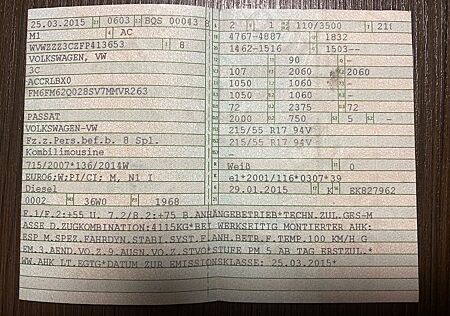 25.03.2015 0603 BQS 00043 8
M1 AC
WVWZZZ3CZFP413653 8
VOLKSWAGEN, VW
3C
ACCRLBX0
FM6FM62Q028SV7MMVR263
PASSAT
VOLKSWAGEN-VW
Fz.z.Pers.bef.b. 8 Spl.
Kombilimousine
715/2007*136/2014W
EURO6;W;PI/CI; M, N1 I
Diesel
0002 36W0 1968
2 1 110/3500
4767-4887 1832
1462-1516 1503--
90 -
107 2060 2060
1050 1060 -
1050 1060 -
72 2375 72
2000 750 5 -
215/55 R17 94V
215/55 R17 94V
-
Weiß 0
e1*2001/116*0307*39
29.01.2015 K EK827962
F.1/F.2:+55 U. 7.2/8.2:+75 B.ANHÄNGEBETRIEB*TECHN.ZUL.GES-M
ASSE D.ZUGKOMBINATION:4115KG*BEI WERKSEITIG MONTIERTER AHK:
ESP M.SPEZ.FAHRDYN.STABI.SYST.F.ANH.BETR.F.TEMP.100 KM/H G
EM.3.AEND.VO.Z.9.AUSN.VO.Z.STVO*STUFE PM 5 AB TAG ERSTZUL.*
WW.AHK LT.EGTG*DATUM ZUR EMISSIONSKLASSE: 25.03.2015*